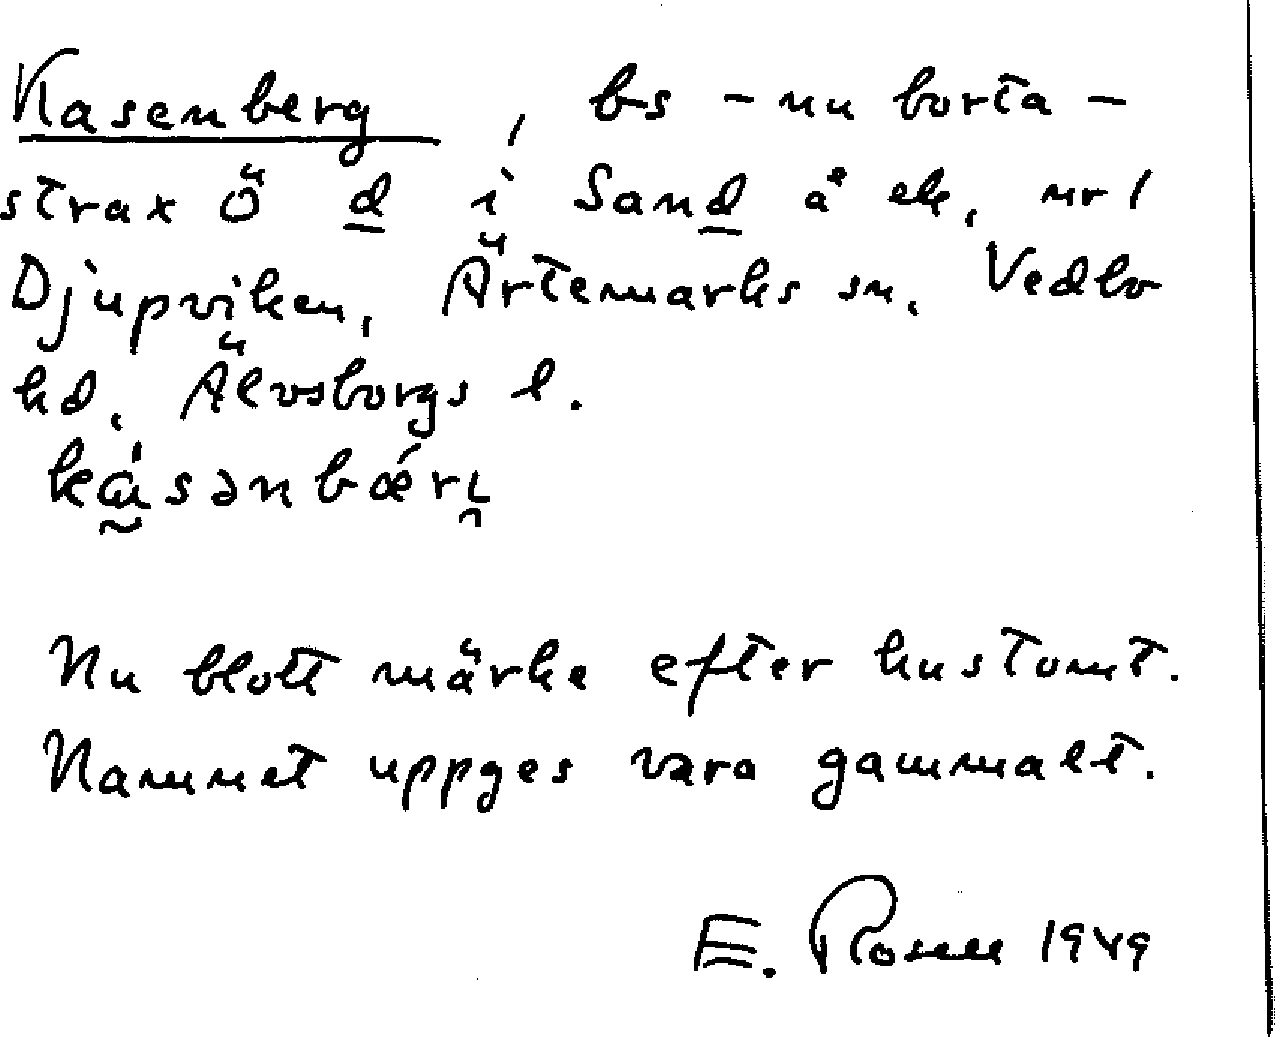 Kasenberg, bs - nu borta -
strax Ö d i Sand å ek. nr 1
Djupviken, Ärtemarks sn. Vedbo
hd. Älvsborgs l.
Nu blott märke efter hustomt.
Namnet uppges vara gammalt.
E. Rosell 1949